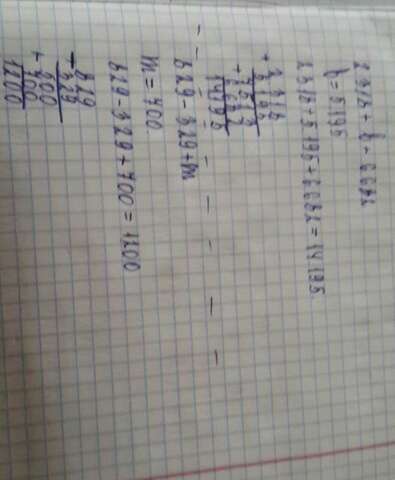 2318 + b + 6682
b = 5195
2318 + 5195 + 6682 = 14195
+ 2318
5195
+ 7513
6682
14195
829 - 329 + m
m = 700
829 - 329 + 700 = 1200
- 829
329
+ 500
700
1200